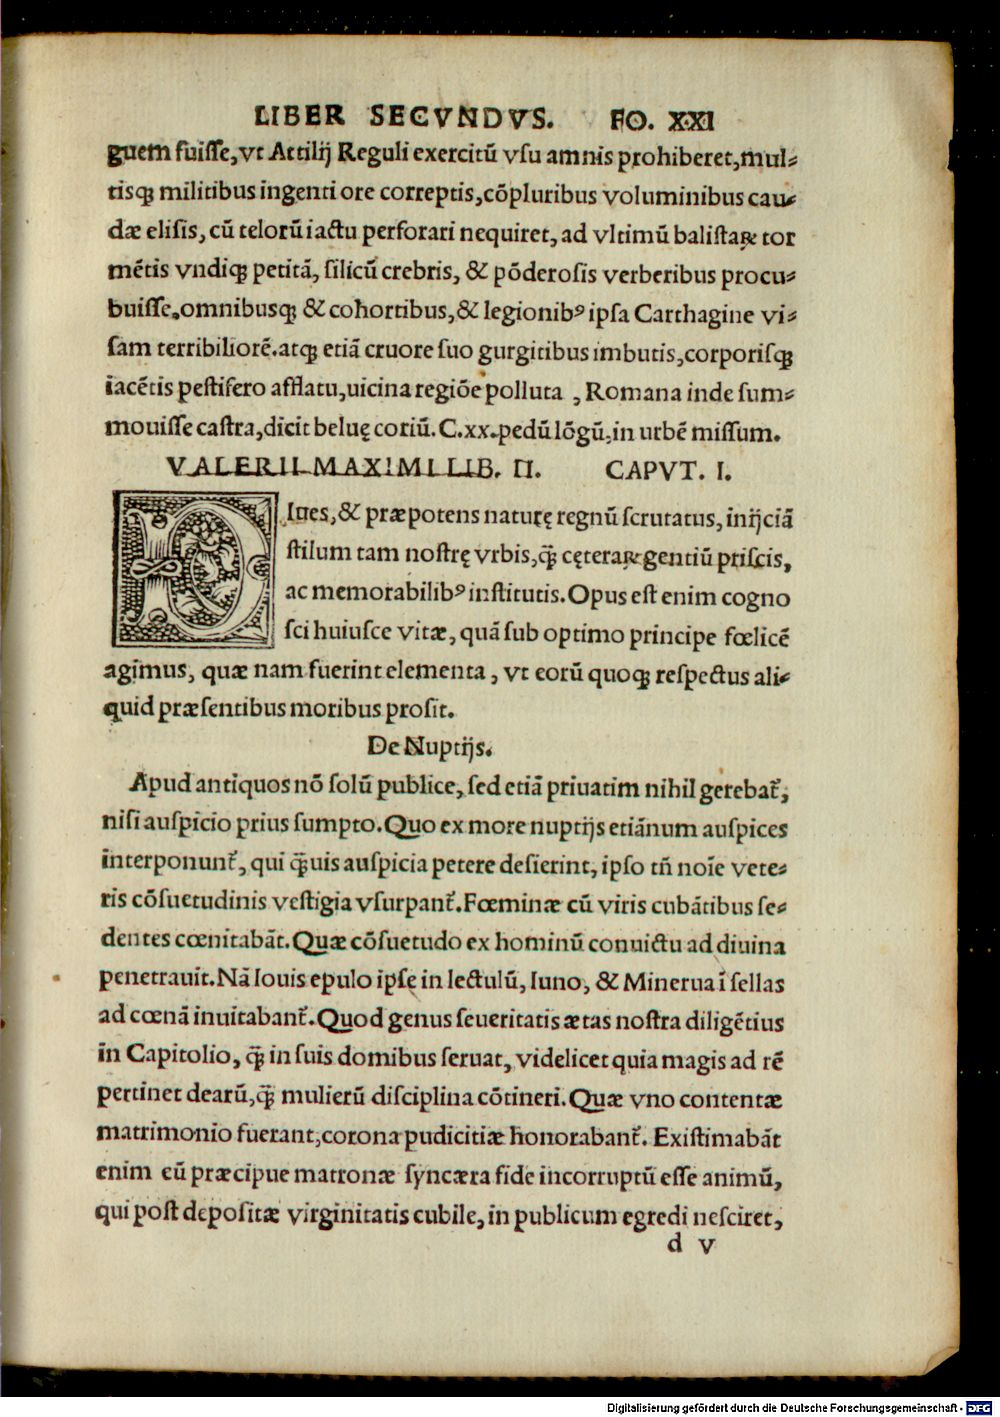 LIBER SECVNDVS. FO. XXI
guem fuiſſe, vt Attilij Reguli exercitū vſu amnis prohiberet, mul⸗
tisꝗ militibus ingenti ore correptis, cōpluribus voluminibus cau⸗
dæ eliſis, cū telorū iactu perforari nequiret, ad vltimū baliſtaꝝ tor
mētis vndiꝗ petitā, ſilicū crebris, & pōderoſis verberibus procu⸗
buiſſe, omnibusꝗ & cohortibus, & legionibꝰ ipſa Carthagine vi⸗
ſam terribiliorē. atꝗ etiā cruore ſuo gurgitibus imbutis, corporiſꝗ
iacētis peſtifero afflatu, uicina regiōe polluta , Romana inde ſum⸗
mouiſſe caſtra, dicit beluę coriū. C.xx. pedū lōgū, in urbē miſſum.
VALERII MAXIMI LIB. II. CAPVT. I.
DItes, & præpotens naturę regnū ſcrutatus, inijciā
ſtilum tam noſtrę vrbis, ꝗ̃ cęteraꝝ gentiū priſcis,
ac memorabilibꝰ inſtitutis. Opus eſt enim cogno
ſci huiuſce vitæ, quā ſub optimo principe fœlicē
agimus, quæ nam fuerint elementa, vt eorū quoꝗ reſpectus ali⸗
quid præſentibus moribus proſit.
De Nuptijs.
Apud antiquos nō ſolū publice, ſed etiā priuatim nihil gerebat᷑,
niſi auſpicio prius ſumpto. Quo ex more nuptijs etiānum auſpices
interponunt᷑, qui ꝗ̃uis auſpicia petere deſierint, ipſo tñ noīe vete⸗
ris cōſuetudinis veſtigia vſurpant᷑. Fœminæ cū viris cubātibus ſe⸗
dentes cœnitabāt. Quæ cōſuetudo ex hominū conuictu ad diuina
penetrauit. Nā Iouis epulo ipſe in lectulū, Iuno, & Minerua ī ſellas
ad cœnā inuitabant᷑. Quod genus ſeueritatis ætas noſtra diligētius
in Capitolio, ꝗ̃ in ſuis domibus ſeruat, videlicet quia magis ad rē
pertinet dearū, ꝗ̃ mulierū diſciplina cōtineri. Quæ vno contentæ
matrimonio fuerant, corona pudicitiæ honorabant᷑. Exiſtimabāt
enim eū præcipue matronæ ſyncæra fide incorruptū eſſe animū,
qui poſt depoſitæ virginitatis cubile, in publicum egredi neſciret,
d v
Digitalisierung gefördert durch die Deutsche Forschungsgemeinschaft - DFG